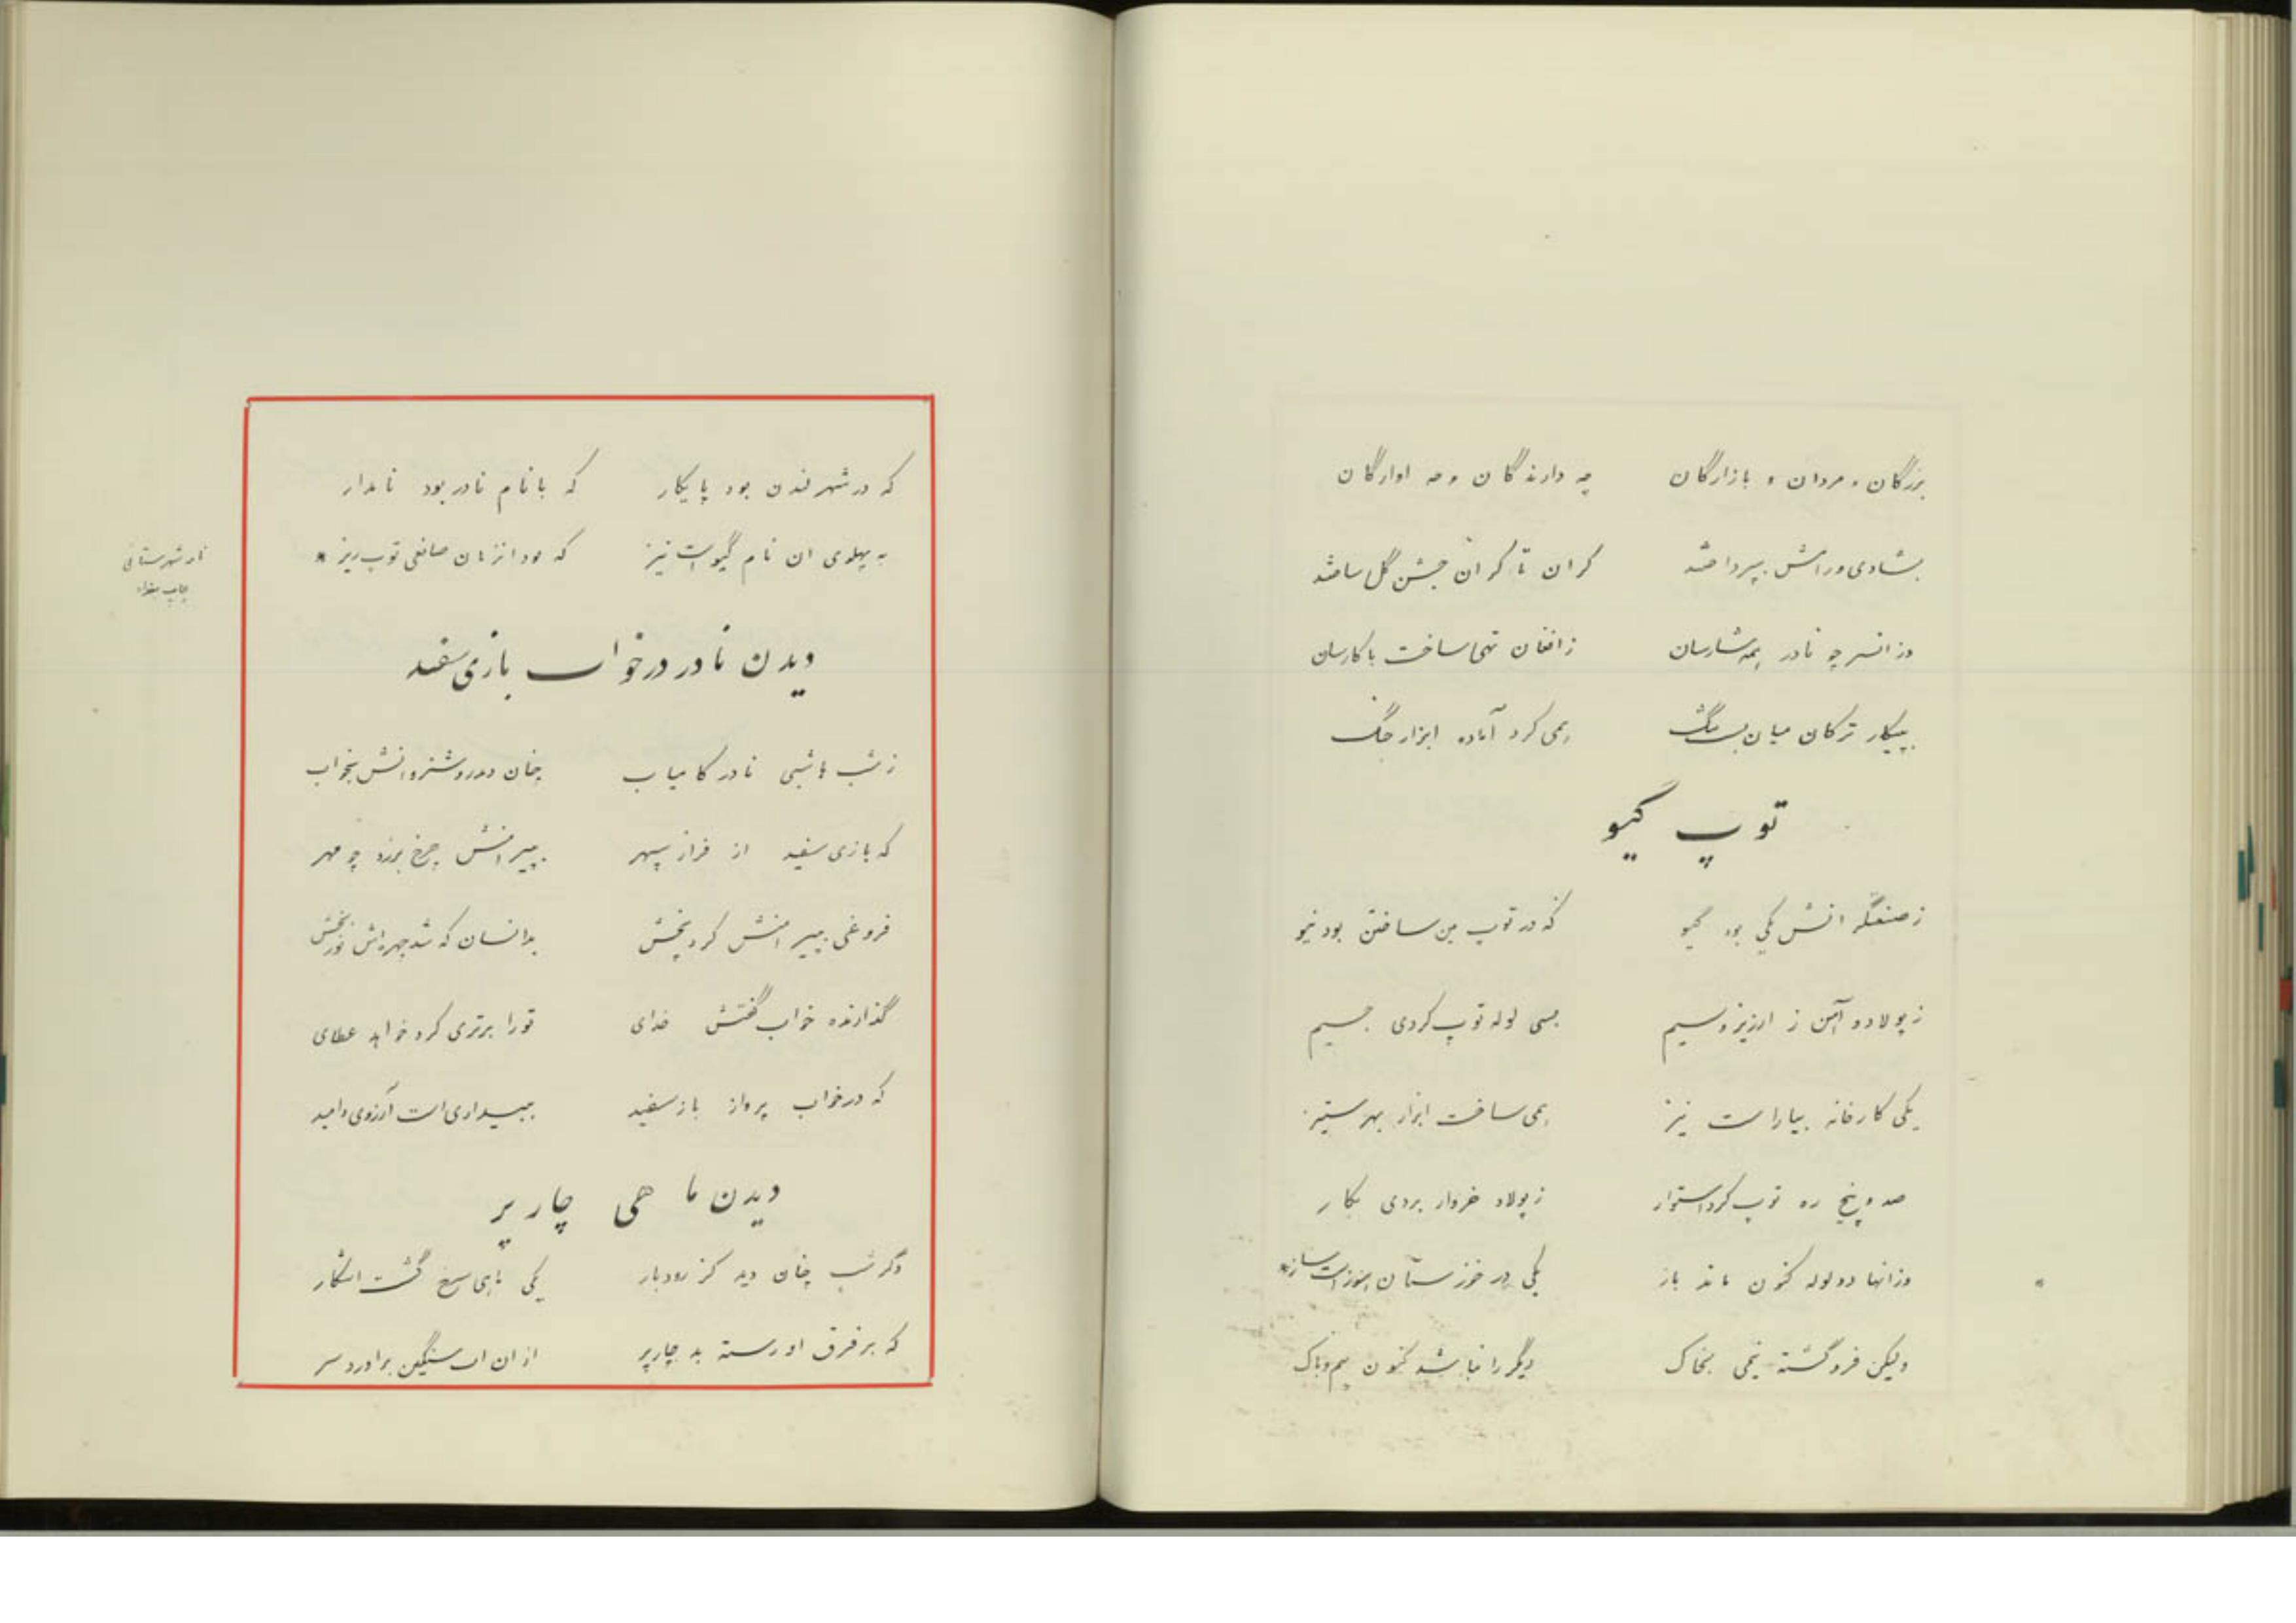 بزرگان و مردان و بازارگان چه دارندگان و چه اوارگان
بشادی و رامش بپرداختند کران تا کران جشن گل ساختند
وز انسر چو نادر همه شارسان ز افغان تهی ساخت با کارسان
بپیکار ترکان میان بست تنگ همی کرد آماده ابزار جنگ
توپ گیو
ز صنعتگرانش یکی بود گیو که در توپ من ساختن بود نیو
ز پولاد و آهن ز ارزیز و سیم بسی لوله توپ کردی جسیم
یکی کارخانه بیاراست نیز همی ساخت ابزار بهر ستیز
صد و پنج ره توپ کرد استوار ز پولاد خروار بردی بکار
وزانها دو لوله کنون ماند باز یکی در خوزستان هنوز است ساز *
ولیکن فرو گشته نیمی بخاک دیگر را نباشد کنون بیم و باک
که در شهر لندن بود پایکار که با نام نادر بود نامدار
به پهلوی ان نام گیو است نیز که بود انزمان صانعی توپ ریز *
نادر شهرستانی
چاپ بغداد
دیدن نادر در خواب بازی سفید
ز شب ها شبی نادر کامیاب چنان دید روشنروانش بخواب
که بازی سفید از فراز سپهر بپیرامنش چرخ برزد چو مهر
فروغی بپیرامنش کرد پخش بدانسان که شد چهره اش نور بخش
گذارنده خواب گفتش خدای تو را برتری کرد خواهد عطای
که در خواب پرواز باز سفید ببیداری است آرزوی و امید
دیدن ماهی چار پر
دگر شب چنان دید کز رودبار یکی ماهی سرخ گشت اشکار
که بر فرق او رسته بد چار پر از ان اب سنگین براورد سر